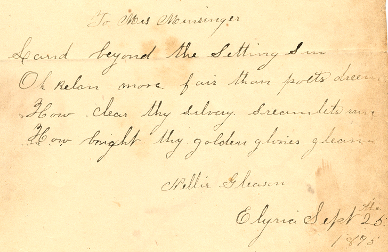 To Miss Munsinger
Land beyond the Setting Sun
Oh Relan more fair than poets dream
How clear thy silvery streamlets run
How bright thy golden glories gleam
Nellie Gleason
Elyria Sept the 25
1875